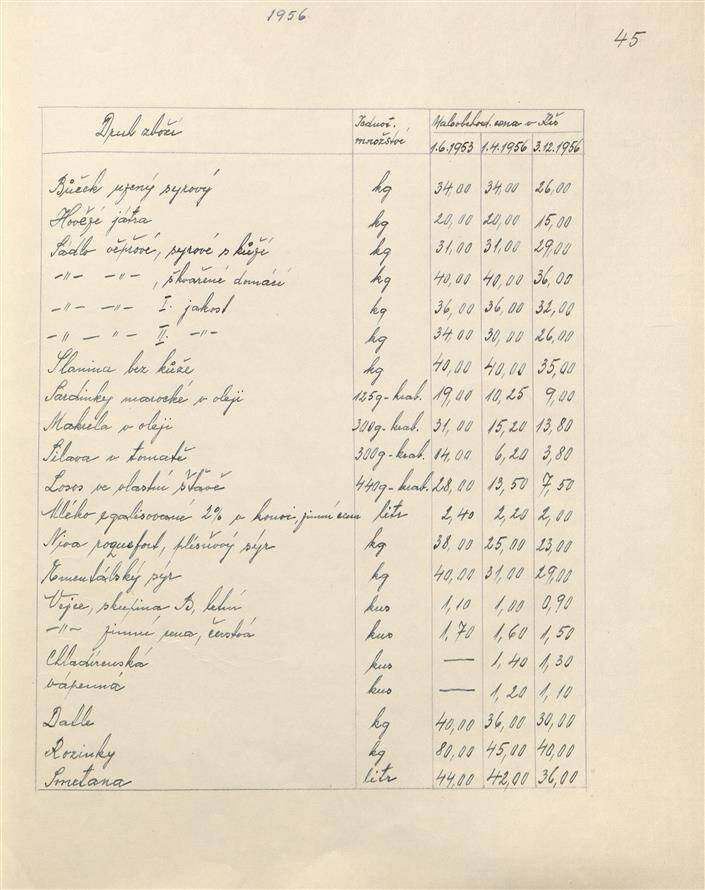 1956.
45
Druh zboží Jednot. množství Maloobchod. cena v Kčs
1.6.1953 1.4.1956 3.12.1956
Bůček uzený syrový kg 34,00 34,00 26,00
Hovězí játra kg 20,00 20,00 15,00
Sádlo vepřové, syrové s kůží kg 31,00 31,00 29,00
-"- -"-, škvařené domácí kg 40,00 40,00 36,00
-"- -"- I. jakost kg 36,00 36,00 32,00
-"- -"- II. -"- kg 34,00 30,00 26,00
Slanina bez kůže kg 40,00 40,00 35,00
Sardinky marocké v oleji 125g-krab. 19,00 10,25 9,00
Makrela v oleji 300g-krab. 31,00 15,20 13,80
Silava v tomatě 300g-krab. 14,00 6,20 3,80
Losos ve vlastní šťávě 440g-krab. 28,00 13,50 7,50
Mléko egalisované 2% v konvi. zimní cena litr 2,40 2,20 2,00
Niva roquefort, plísňový sýr kg 38,00 25,00 23,00
Ementálský sýr kg 40,00 31,00 29,00
Vejce, skupina B, letní kus 1,10 1,00 0,90
-"- zimní cena, čerstvá kus 1,70 1,60 1,50
Chladírenská kus — 1,40 1,30
vápenná kus — 1,20 1,10
Datle kg 40,00 36,00 30,00
Rozinky kg 80,00 45,00 40,00
Smetana litr 44,00 42,00 36,00